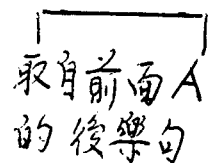 取自前面A
的後樂句